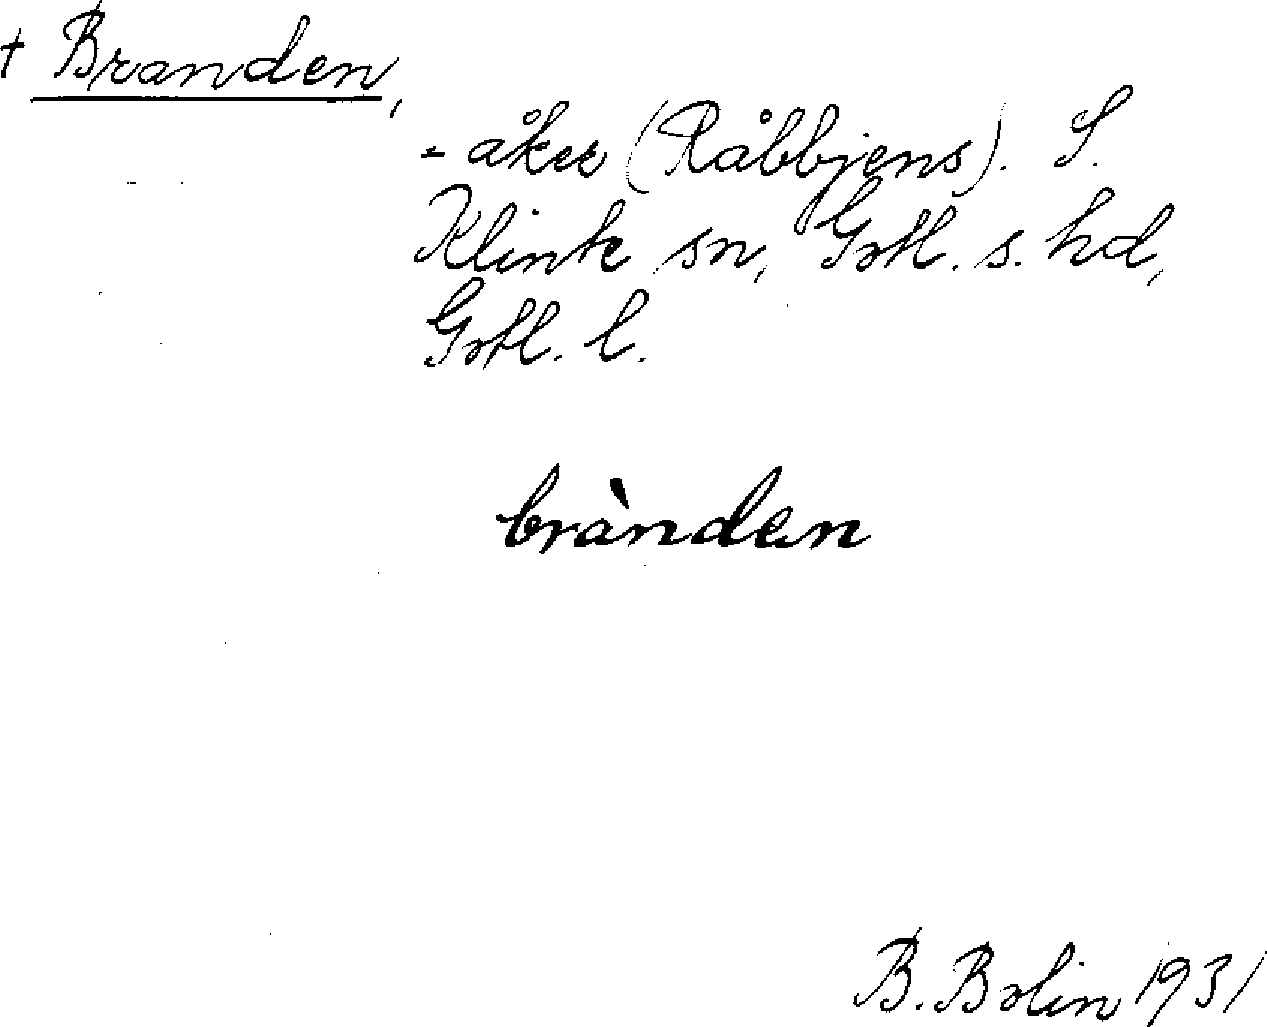 + Branden,
- åker (Råbbjens). S.
Klinte sn, Gotl. s. hd,
Gotl. l.
brànden
B. Bolin 1931